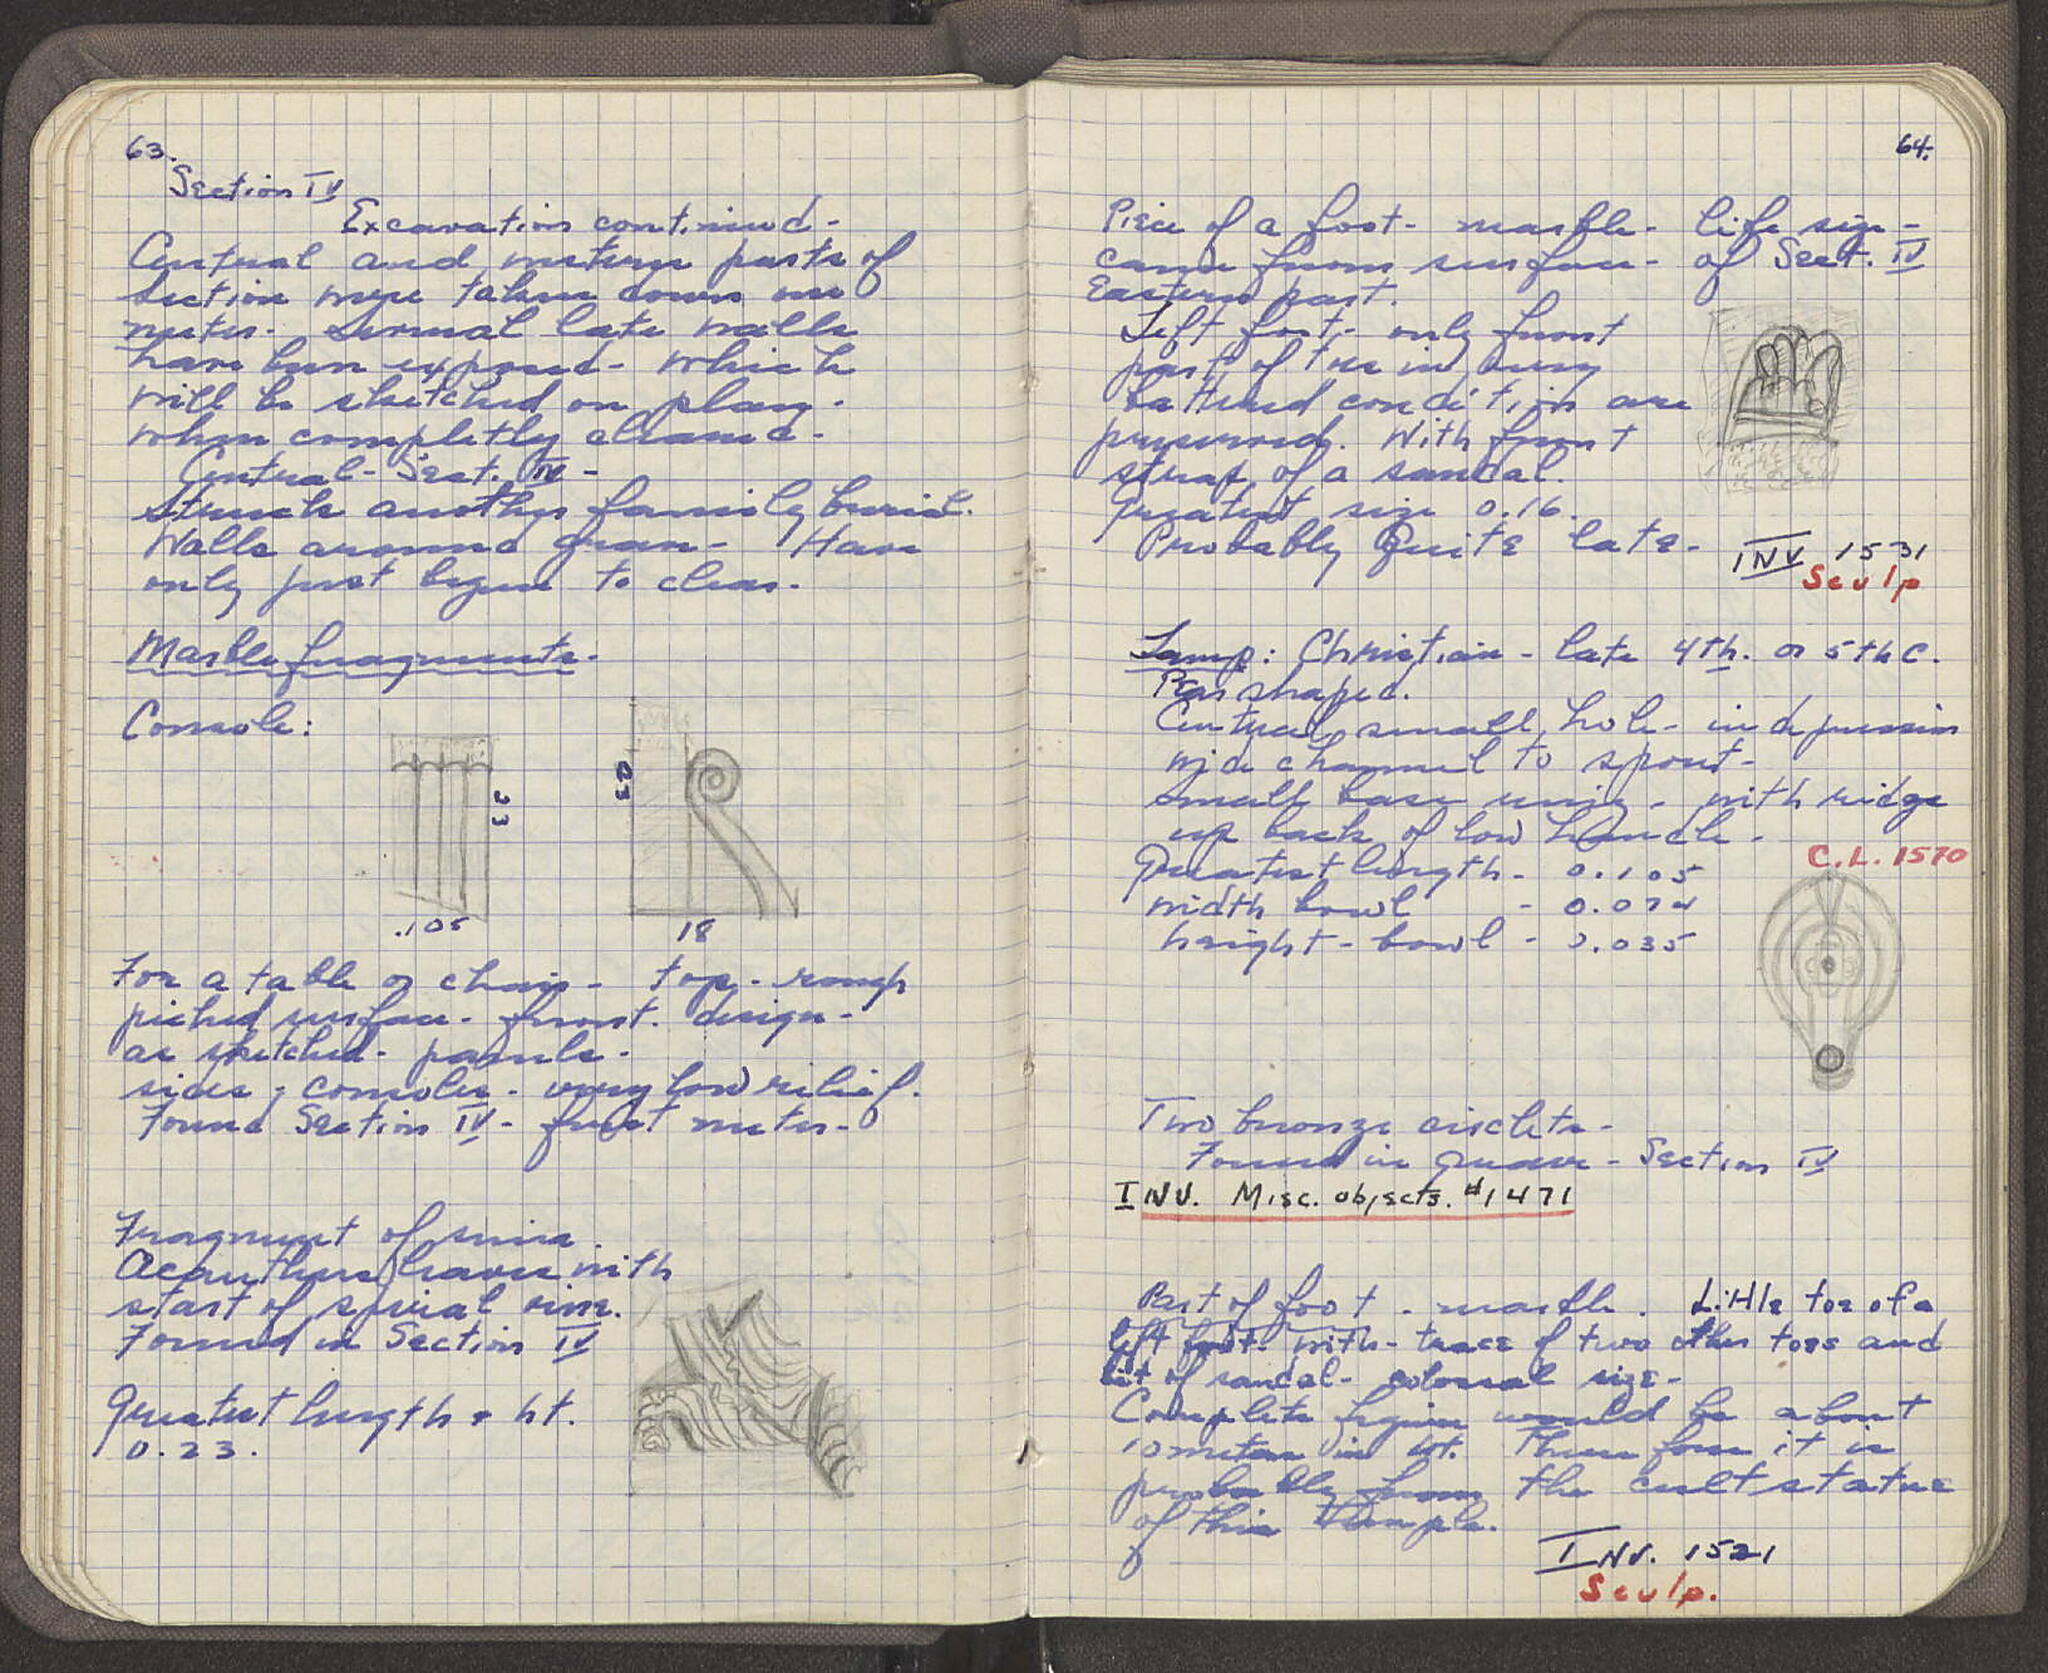 63.
Section IV
Excavation continued -
Central and western parts of
section were taken down one
meter. Several late walls
have been exposed - which
will be sketched on plan -
when completly cleaned -
Central - Sect. IV -
struck another family burial.
Walls around grave - Have
only just begun to clear.
Marble fragments.
Console:
23
23
.105
18
For a table or chair - top - rough
picked surface - front. design -
as sketched - panels -
sides; consoles - very low relief.
Found Section IV - first meter -
Fragment of sima.
Acanthus leaves with
start of spiral
Found in Section IV
Greatest length + ht.
0.23.
64.
Piece of a foot - marble - life size -
came from surface - of Sect. IV
Eastern part.
Left foot - only front
part of toes in very
battered condition are
preserved. With front
strap of a sandal.
Greatest size 0.16.
Probably Quite late -
INV 1531
Sculp
Lamp: Christian - late 4th. or 5th C.
Pear shaped.
Central small hole - in depression
wide channel to spout -
small base - with ridge
up back of low handle -
C.L. 1570
Greatest length - 0.105
width bowl - 0.074
height - bowl - 0.035
Two bronze circlets -
Found in grave - Section IV
INV. Misc. objects. #1471
Part of foot - marble. Little toe of a
left foot. with - trace of two other toes and
bit of sandal - colossal size -
Complete figure would be about
10 meters in ht. Therefore it is
probably from the cult statue
of this temple.
INV. 1521
Sculp.